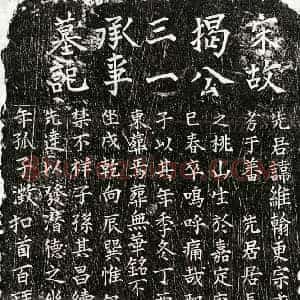 宋故
揭公
三一
承事
墓記
先君諱維翰更宗
芳于 先君居
之桃山生於嘉定
巳春卒嗚呼痛哉
子以其年季冬丁
東葬焉葬無 銘不
坐戌乾向辰巽惟
禁不祥子孫其昌
先達以發潛德之
年孤子 扣首百